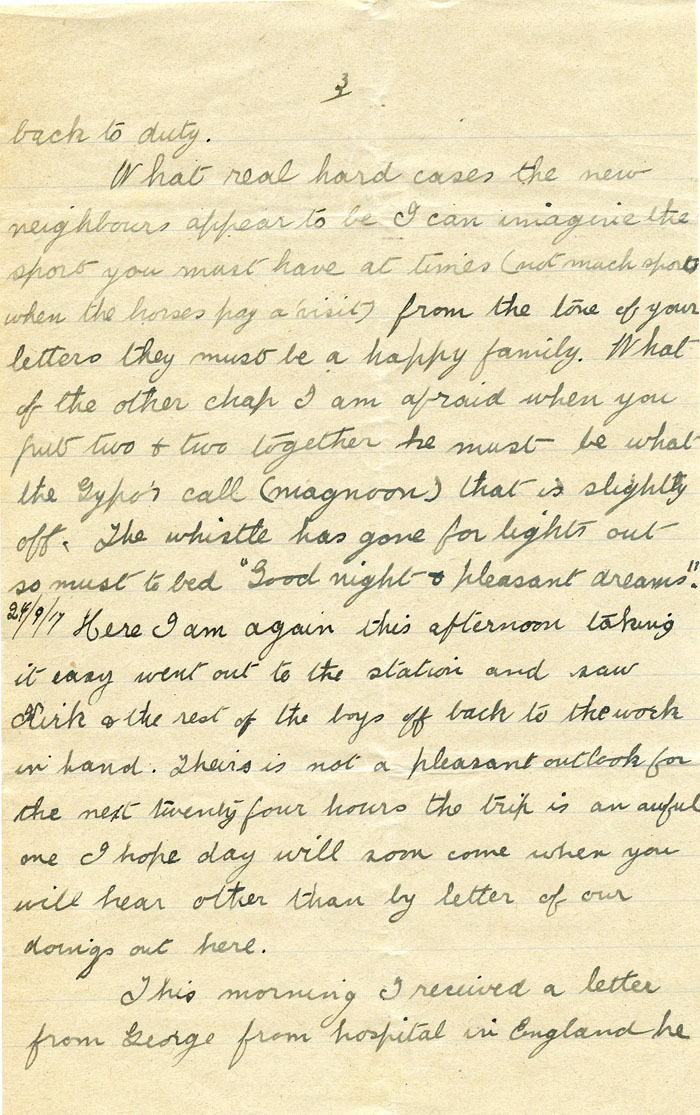 3
back to duty.
What real hard cases the new
neighbours appear to be I can imagine the
sport you must have at times (not much sport
when the horses pay a visit) from the tone of your
letters they must be a happy family. What
of the other chap I am afraid when you
put two & two together he must be what
the Gypo's call (magnoon) that is slightly
off. The whistle has gone for lights out
so must to bed "Good night & pleasant dreams".
24/9/17 Here I am again this afternoon taking
it easy went out to the station and saw
Kirk & the rest of the boys off back to the work
in hand. Theirs is not a pleasant outlook for
the next twenty four hours the trip is an awful
one I hope day will soon come when you
will hear other than by letter of our
doings out here.
This morning I received a letter
from George from hospital in England he